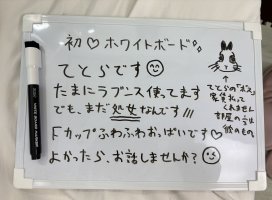 初♡ホワイトボード
てとらです
たまにラブコス使ってます
でも、まだ処女なんです!!!
Fカップふわふわおっぱいです♡
よかったら、お話しませんか?
↑
てとらの
家賃払って
くれません
部屋の
彼のもの